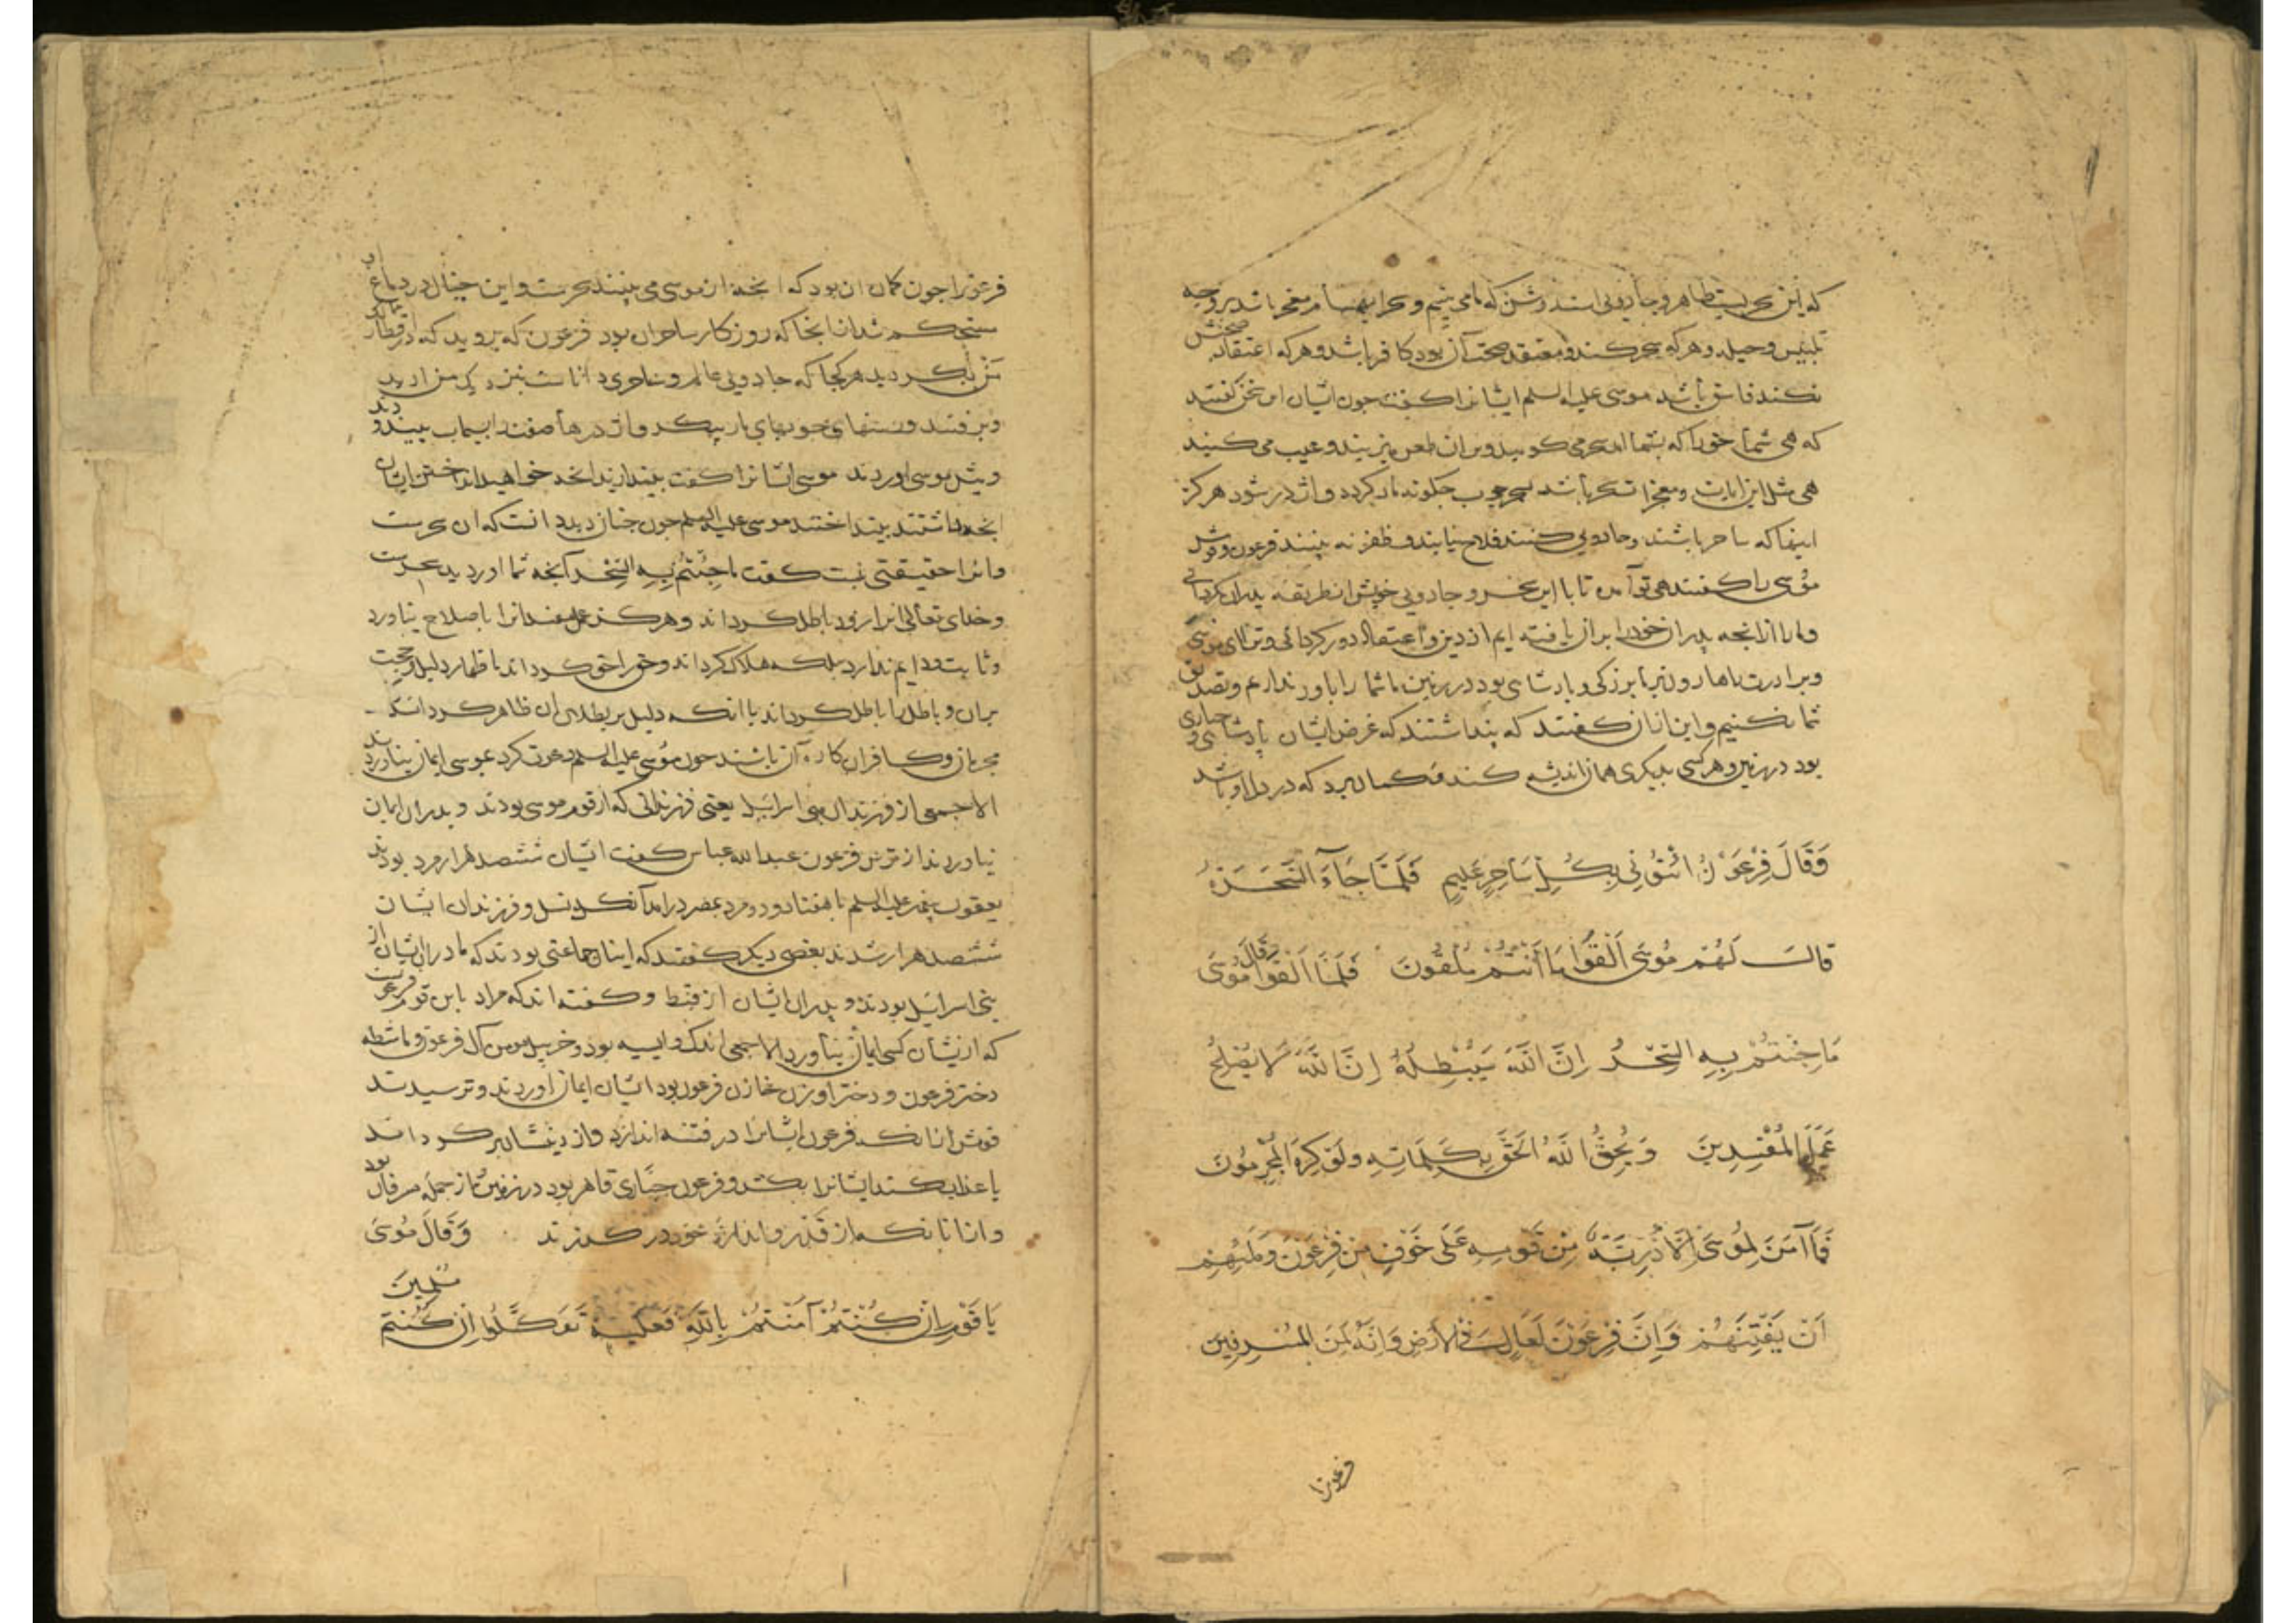 که این سحریست ظاهر و جادویی است روشن که ما می بینیم و سحر ایهام امر معجز باشد بر وجه
تلبیس و حیله و هر که سحر کند و معتقد صحت آن بود کافر باشد و هر که اعتقاد صحتش
نکند فاسق باشد موسی علیه السلم ایشانرا کفت چون ایشان این سخن کفتند
که هی شما حق را که بشما امد سحر می کویید و در ان طعن می زنید و عیب می کنید
هی مثل این ایات و معجزات سحر باشد چوب چکونه مار کردد و اژدر شود هرکز
اینها که ساحر باشند و جادویی کنند فلاح نیابند و ظفر نه بینند فرعون و قومش
موسی را کفتند هی تو آمده تا با این سحر و جادویی خویش از طریقه پدران بکردانی
و ما را از انچه پدران خود را بران یافته ایم از دین و اعتقاد دور کردانی و ترا ای موسی
و برادرت را هارون بر ما بزرکی و پادشاهی بود در زمین ما شما را باور نداریم و تصدیق
شما نکنیم و این از ان کفتند که پنداشتند که غرض ایشان پادشاهی و جباری
بود در زمین و هر کسی بدیکری همان اندیشه کند و کمان برد که در دل او باشد
وَقَالَ فِرْعَوْنُ ائْتُونِي بِكُلِّ سَاحِرٍ عَلِيمٍ فَلَمَّا جَآءَ السَّحَرَةُ
قَالَ لَهُمْ مُوسَى أَلْقُوا مَا أَنْتُمْ مُلْقُونَ فَلَمَّا أَلْقَوْا قَالَ مُوسَى
مَا جِئْتُمْ بِهِ السِّحْرُ إِنَّ اللَّهَ سَيُبْطِلُهُ إِنَّ اللَّهَ لَا يُصْلِحُ
عَمَلَ الْمُفْسِدِينَ وَيُحِقُّ اللَّهُ الْحَقَّ بِكَلِمَاتِهِ وَلَوْ كَرِهَ الْمُجْرِمُونَ
فَمَا آمَنَ لِمُوسَى إِلَّا ذُرِّيَّةٌ مِنْ قَوْمِهِ عَلَى خَوْفٍ مِنْ فِرْعَوْنَ وَمَلَئِهِمْ
أَنْ يَفْتِنَهُمْ وَإِنَّ فِرْعَوْنَ لَعَالٍ فِي الْأَرْضِ وَإِنَّهُ لَمِنَ الْمُسْرِفِينَ
فرعونرا
فرعونرا چون کمان ان بود که انچه از موسی می بینند سحرست و این خیال در دماغ او
مستحکم شد از انجا که روزکار ساحران بود فرعون که بروید که در اقطار
زمین بکردید هر کجا که جادویی عالم و ساحری داناست بنزدیک من ارید
و برفتند و رسنهای چوبهای مار پیکر و اژدرها صفت
و پیش موسی اوردند موسی ایشانرا کفت بیندازید انچه خواهید انداختن ایشان
انچه داشتند بینداختند موسی علیه السلم چون چنان دید دانست که ان سحرست
و انرا حقیقتی نیست کفت مَا جِئْتُمْ بِهِ السِّحْرُ آنچه شما اوردید سحرست
و خدای تعالی انرا زود باطل کرداند و هرکز عمل مفسدانرا باصلاح نیاورد
و ثابت و دایم ندارد بلکه هلاک کرداند و حق را حق کرداند باظهار دلیل و حجت
بران و باطل را باطل کرداند با انکه دلیل بر بطلان ان ظاهر کرداند اکر
مجرمان و کافران کاره آن باشند چون موسی علیه السلم دعوت کرد بموسی ایمان نیاوردند
الا جمعی از فرزندان بنی اسرائیل یعنی فرزندانی که از قوم موسی بودند و پدران ایمان
نیاوردند از ترس فرعون عبدالله عباس کفت ایشان ششصد هزار مرد بودند
یعقوب پیغمبر علیه السلم با هفتاد و دو مرد بمصر درامد آنکه نسل و فرزندان ایشان
ششصد هزار شدند بعضی دیکر کفتند که اینان جماعتی بودند که مادران ایشان از
بنی اسرائیل بودند و پدران ایشان از قبط و کفته اند که مراد باین قوم فرعونست
که ازیشان کسی ایمان نیاورد الا جمعی اندک و ایسیه بود و حزبیل مومن آل فرعون و ماشطه
دختر فرعون و دختر او و زن خازن فرعون بود ایشان ایمان اوردند و ترسیدند
قومش از انکه فرعون ایشانرا در فتنه اندازد و از دینشان برکرداند
یا عذاب کند ایشانرا یا بکشد و فرعون جباری قاهر بود در زمین و از جمله مسرفان بود
و از انان که از قدر و اندازه خود درکذرند وَقَالَ مُوسَى
يَا قَوْمِ إِنْ كُنْتُمْ آمَنْتُمْ بِاللَّهِ فَعَلَيْهِ تَوَكَّلُوا إِنْ كُنْتُمْ مُسْلِمِينَ